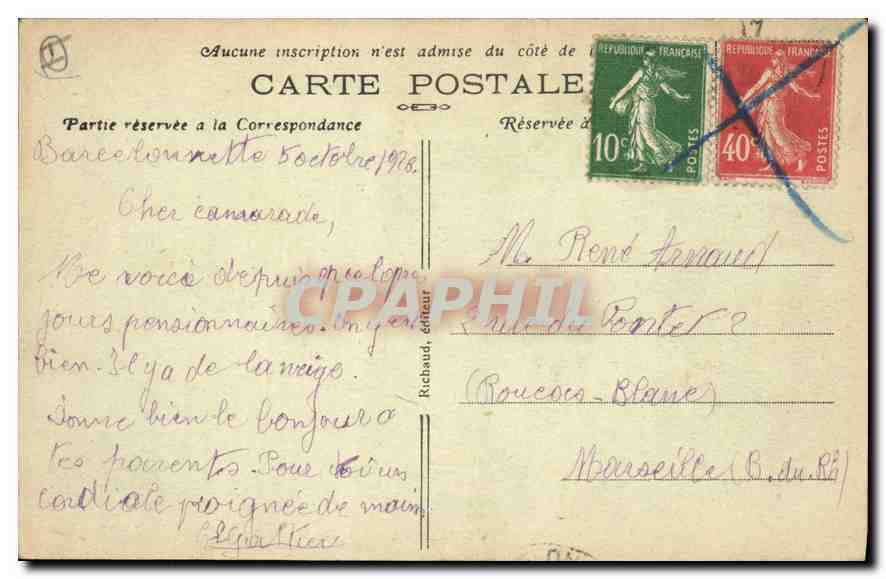 Aucune inscription n'est admise du côté de
CARTE POSTALE
Partie réservée a la Correspondance
Réservée à
REPUBLIQUE FRANÇAISE
10c
POSTES
REPUBLIQUE FRANÇAISE
40c
POSTES
17
Barcelonnette 5 octobre 1928.
Cher camarade,
Me voici depuis quelques
jours pensionnaires. On y est
bien. Il y a de la neige.
Donne bien le bonjour à
tes parents. Pour toi un
cordiale poignée de main
Richaud, éditeur
M. René Arnaud
rue du
(Roucas-Blanc)
Marseille (B. du Rh)
CPAPHIL